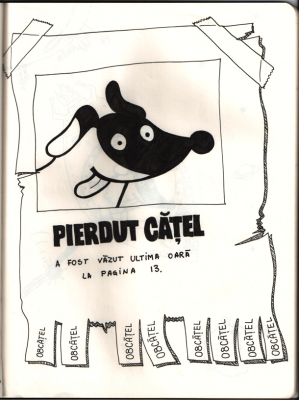 PIERDUT CĂȚEL
A FOST VĂZUT ULTIMA OARĂ
LA PAGINA 13.
OBCĂȚEL
OBCĂȚEL
OBCĂȚEL
OBCĂȚEL
OBCĂȚEL
OBCĂȚEL
OBCĂȚEL
OBCĂȚEL